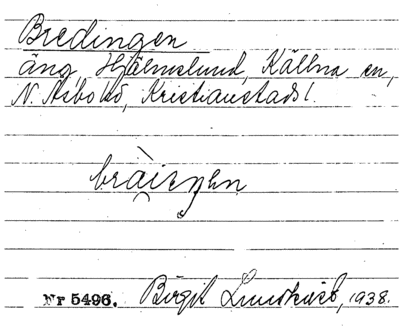 Bredingen
äng, Hjälmslund, Källna sn,
N. Åsbo hd, Kristianstads l.
Nr 5496. Birgit Lundkvist, 1938.